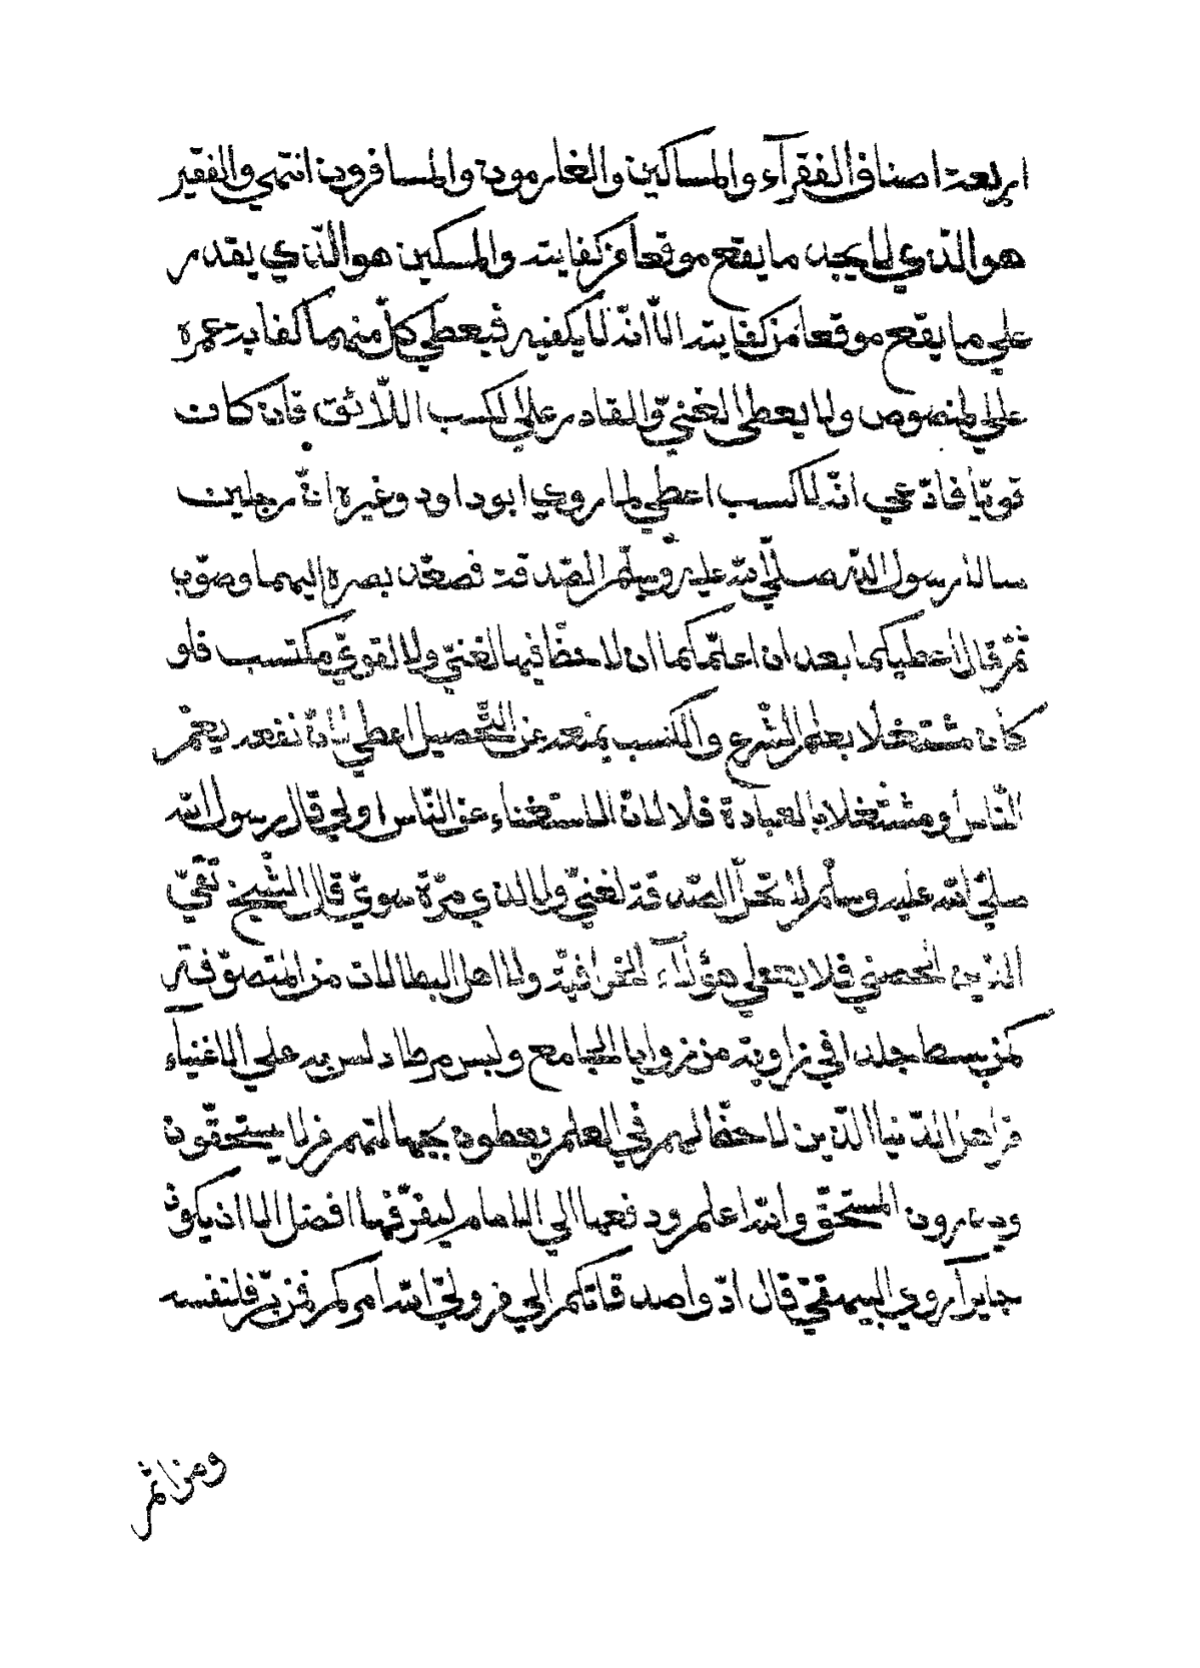 اربعة اصناف الفقرآء والمساكين والغارمون والمسافرون انتهي والفقير
هو الذي لا يجد ما يقع موقعا من كفايته والمسكين هو الّذي يقدر
علي ما يقع موقعا من كفايته الّا انّه لا يكفيه فيعطي كلّ منهما كفاية عمره
علي المنصوص ولا يعطى الغنيّ والقادر علي الكسب اللّائق فان كان
قويّا فادّعي انّه لا كسب اعطي لما روي ابو داود وغيره انّ رجلين
سالا رسول اللّه صلّي اللّه عليه وسلّم الصّدقة فصعّد بصره اليهما وصوّب
ثمّ قال اعطيكما بعد ان اعلّمكما ان لا حظّا فيها لغنيّ ولا لقويّ مكتسب فلو
كان مشتغلا بعلم الشّرع والكسب يمنعه عن التّحصيل اعطي لانّ نفعه يعمّ
النّاس او مشتغلا بالعبادة فلا لانّ الاستغناء عن النّاس اولي قال رسول اللّه
صلّي اللّه عليه وسلّم لا تحلّ الصّدقة لغنيّ ولا لذي مرّة سويّ قال الشّيخ تقيّ
الدّين الحصني فلا يعطي هؤلآء الخرافيّة ولا اهل البطالات من المتصوّفة
كمن بسط جلدا في زاوية من زوايا الجامع ولبس مرطا دلس به علي الاغنيآء
من اهل الدّنيا الّذين لا حظّا لهم في العلم يعطون بجهالتهم من لا يستحقّون
ويذرون المستحقّ واللّه اعلم ودفعها الي الامام ليفرّقها افضل الا ان يكون
جايرآ روي البيهقيّ قال ادّوا صدقاتكم الي من ولّي اللّه امركم فمن برّ فلنفسه
ومن اثم